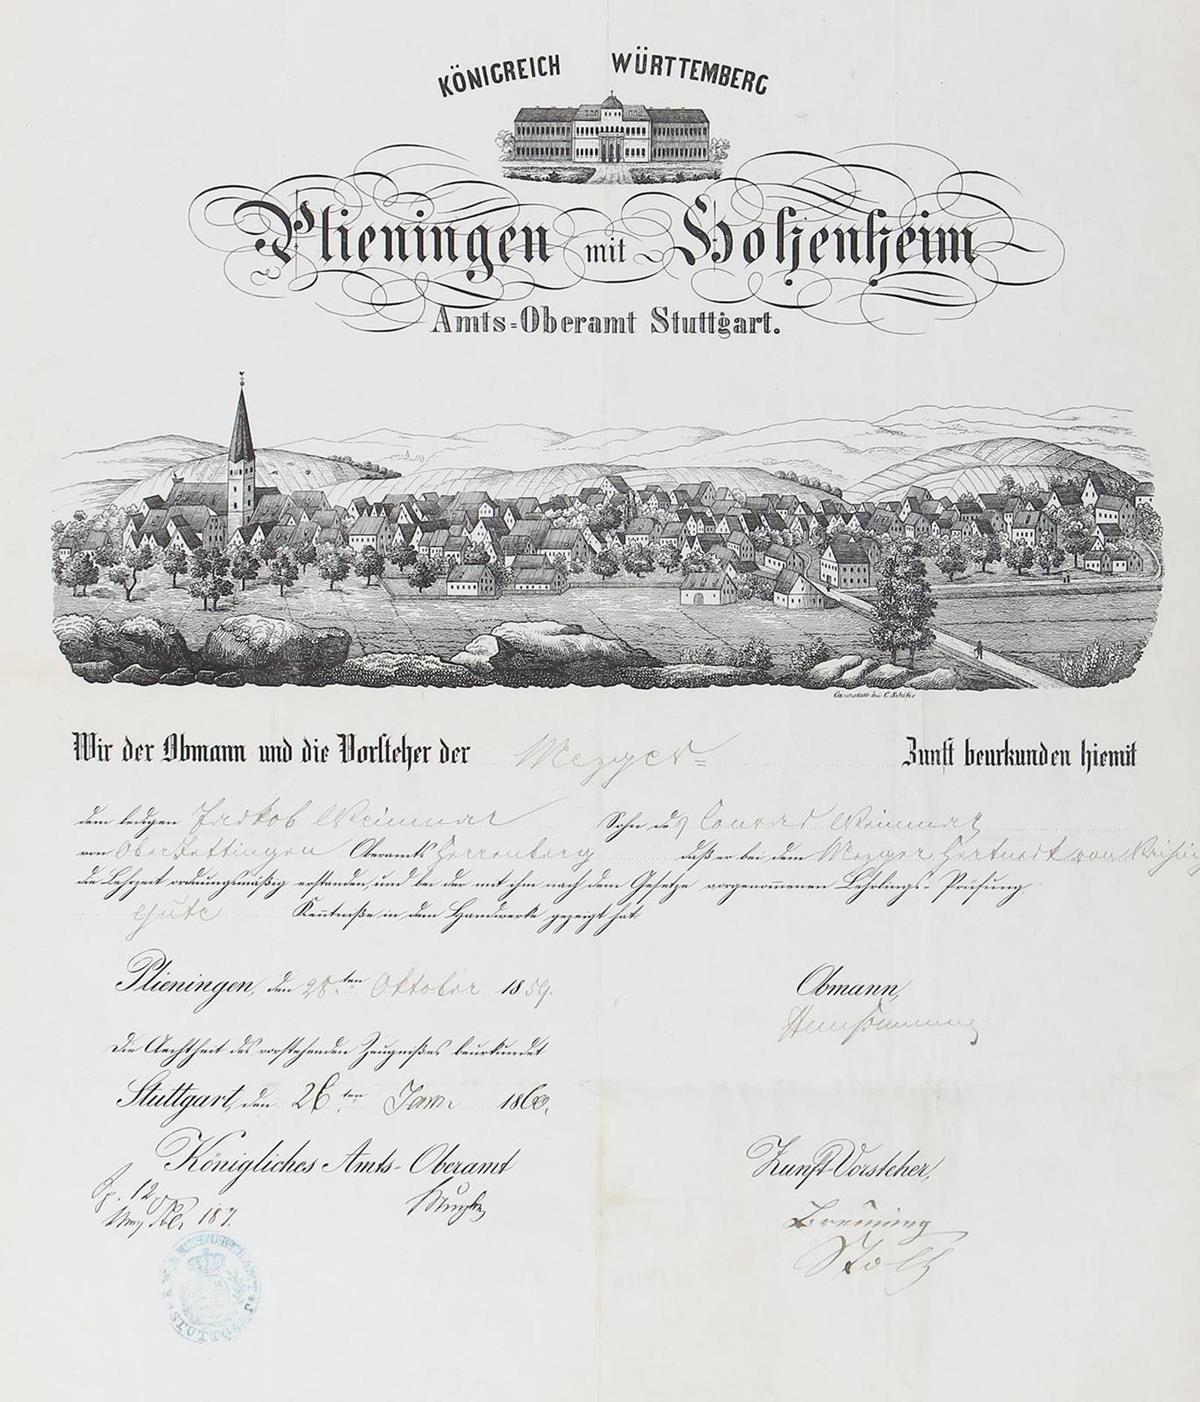 KÖNIGREICH WÜRTTEMBERG
Plieningen mit Hohenheim
Amts=Oberamt Stuttgart.
bei C. Schäfer
Wir der Obmann und die Vorsteher der Mezger= Zunft beurkunden hiemit
dem ledigen Jackob Weimmar Sohn des Conrad Weimmar
von OberJettingen Oberamts Herrenberg daß er bei dem Mezger von
die Lehrzeit ordnungsmäßig erstanden, und bei der mit ihm nach dem Gesetze vorgenommenen Lehrlings-Prüfung,
Gute Kenntniße in dem Handwerke gezeigt hat
Plieningen, den 28.ten Oktober 1859. Obmann,
Die Aechtheit des vorstehenden Zeugnißes beurkundet
Stuttgart, den 26ten Janr 1860.
Königliches Amts-Oberamt Zunft-Vorsteher,
Sp. 12
187.
Breuning
Stoll
STUTTGART